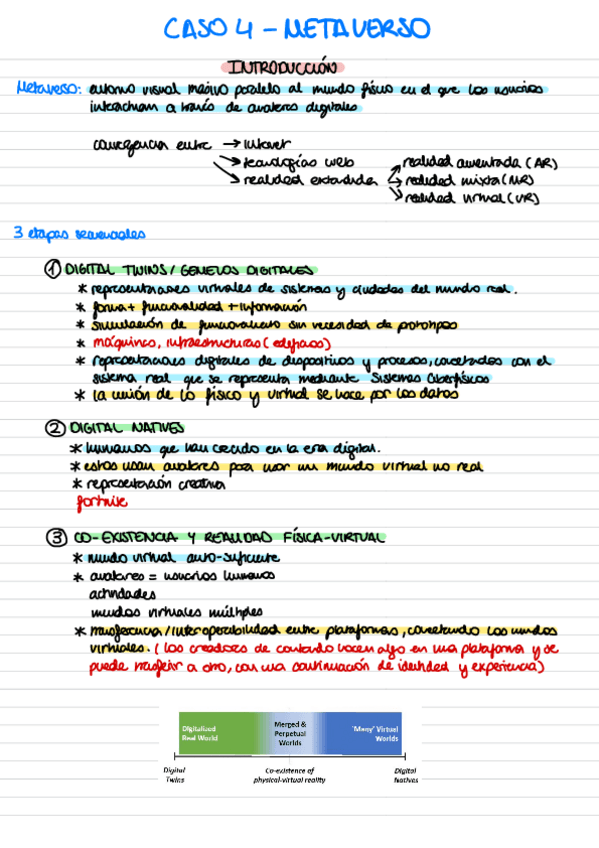 CASO 4 - METAVERSO
INTRODUCCIÓN
Metaverso: entorno visual masivo paralelo al mundo físico en el que los usuarios
interactúan a través de avatares digitales
convergencia entre → internet
→ tecnologías web
→ realidad extendida
→ realidad aumentada (AR)
→ realidad mixta (MR)
→ realidad virtual (VR)
3 etapas secuenciales
① DIGITAL TWINS / GEMELOS DIGITALES
* representaciones virtuales de sistemas y ciudades del mundo real.
* forma + funcionalidad + información
* simulación de funcionamiento sin necesidad de prototipos
* máquinas, infraestructuras (edificios)
* representaciones digitales de dispositivos y procesos, conectados con el
sistema real que se representa mediante sistemas ciberfísicos
* la unión de lo físico y virtual se hace por los datos
② DIGITAL NATIVES
* humanos que han crecido en la era digital.
* estos usan avatares para usar un mundo virtual no real
* representación creativa
fortnite
③ CO-EXISTENCIA Y REALIDAD FÍSICA-VIRTUAL
* mundo virtual auto-suficiente
* avatares = usuarios humanos
actividades
mundos virtuales múltiples
* transferencia/interoperabilidad entre plataformas, conectando los mundos
virtuales. (los creadores de contenido hacen algo en una plataforma y se
puede transferir a otro, con una continuación de identidad y experiencia)
Digitalised Real World
Merged & Perpetual Worlds
'Many' Virtual Worlds
Digital Twins
Co-existence of physical-virtual reality
Digital Natives